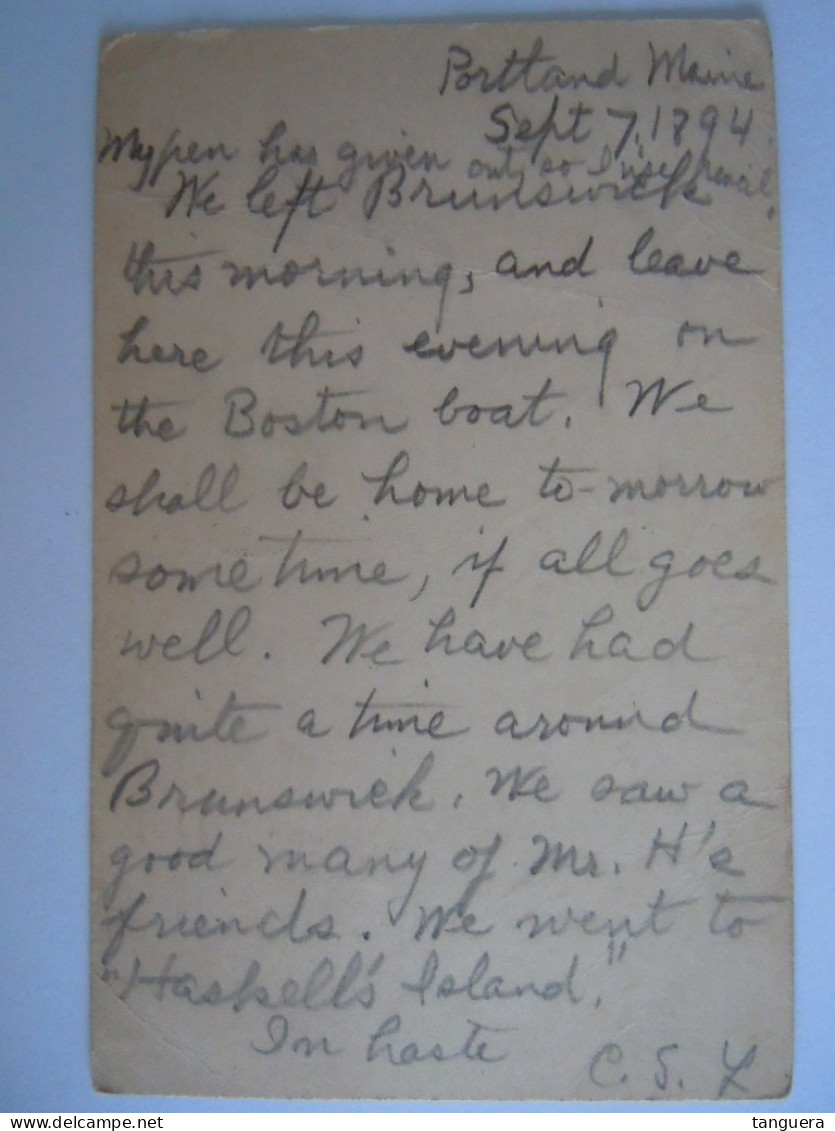 Portland Maine
Sept 7, 1894.
My pen has given out, so I use pencil.
We left Brunswick
this morning, and leave
here this evening on
the Boston boat. We
shall be home to-morrow
some time, if all goes
well. We have had
quite a time around
Brunswick. We saw a
good many of Mr. H's
friends. We went to
"Haskell's Island."
In haste
C. S.
tanguera